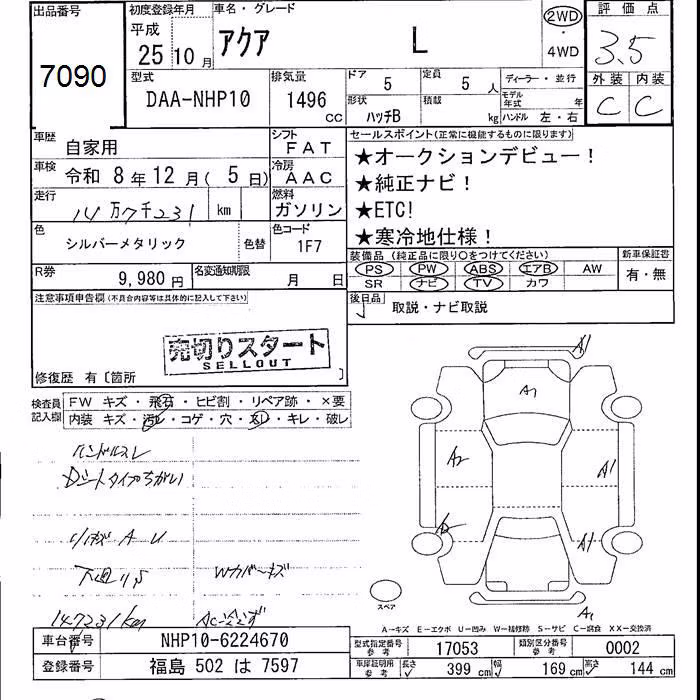 出品番号
7090
初度登録年月
平成 25年 10月
車名・グレード
アクア L
2WD
・
4WD
評価点
3.5
外装 内装
C C
型式
DAA-NHP10
排気量
1496 CC
ドア 5
定員 5 人
形状 ハッチB
積載 kg
ディーラー・並行
モデル年式 年
ハンドル 左・右
車歴 自家用
シフト FAT
車検 令和 8年 12月( 5日)
冷房 AAC
走行 14万7千231 km
燃料 ガソリン
色 シルバーメタリック 色替
色コード 1F7
R券 9,980円
名変通知期限 月 日
セールスポイント(正常に機能するものに限ります)
★オークションデビュー!
★純正ナビ!
★ETC!
★寒冷地仕様!
装備品 (純正品に限り○をつけてください)
PS PW ABS エアB AW
SR ナビ TV カワ
新車保証書
有・無
後日品 取説・ナビ取説
注意事項申告欄(不具合内容等は具体的に記入して下さい)
売切りスタート
SELLOUT
修復歴 有〔箇所 〕
検査員記入欄
FW キズ・飛石・ヒビ割・リペア跡・×要
内装 キズ・汚レ・コゲ・穴・スレ・キレ・破レ
ハンドルスレ
Dシートタイプちがい
小キズ A U
下廻りS
Wカバーキズ
147231km
AC冷えず
A1
A1
A2
A1
A1
A1
スペア
A−キズ E−エクボ U−凹み W−補修跡 S−サビ C−腐食 XX−交換済
車台番号 NHP10-6224670
登録番号 福島 502 は 7597
型式指定番号 参考 17053
類別区分番号 参考 0002
車庫証明用 参考 長さ 399 cm 幅 169 cm 高さ 144 cm